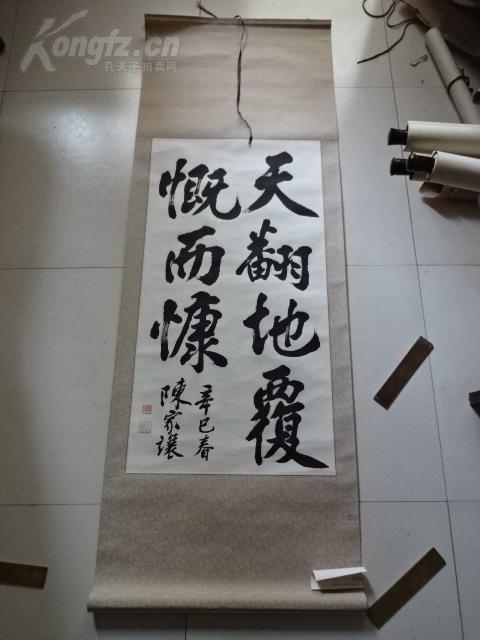 Kongfz.cn
孔夫子拍卖网
天翻地覆
慨而慷
辛巳春
陳家讓